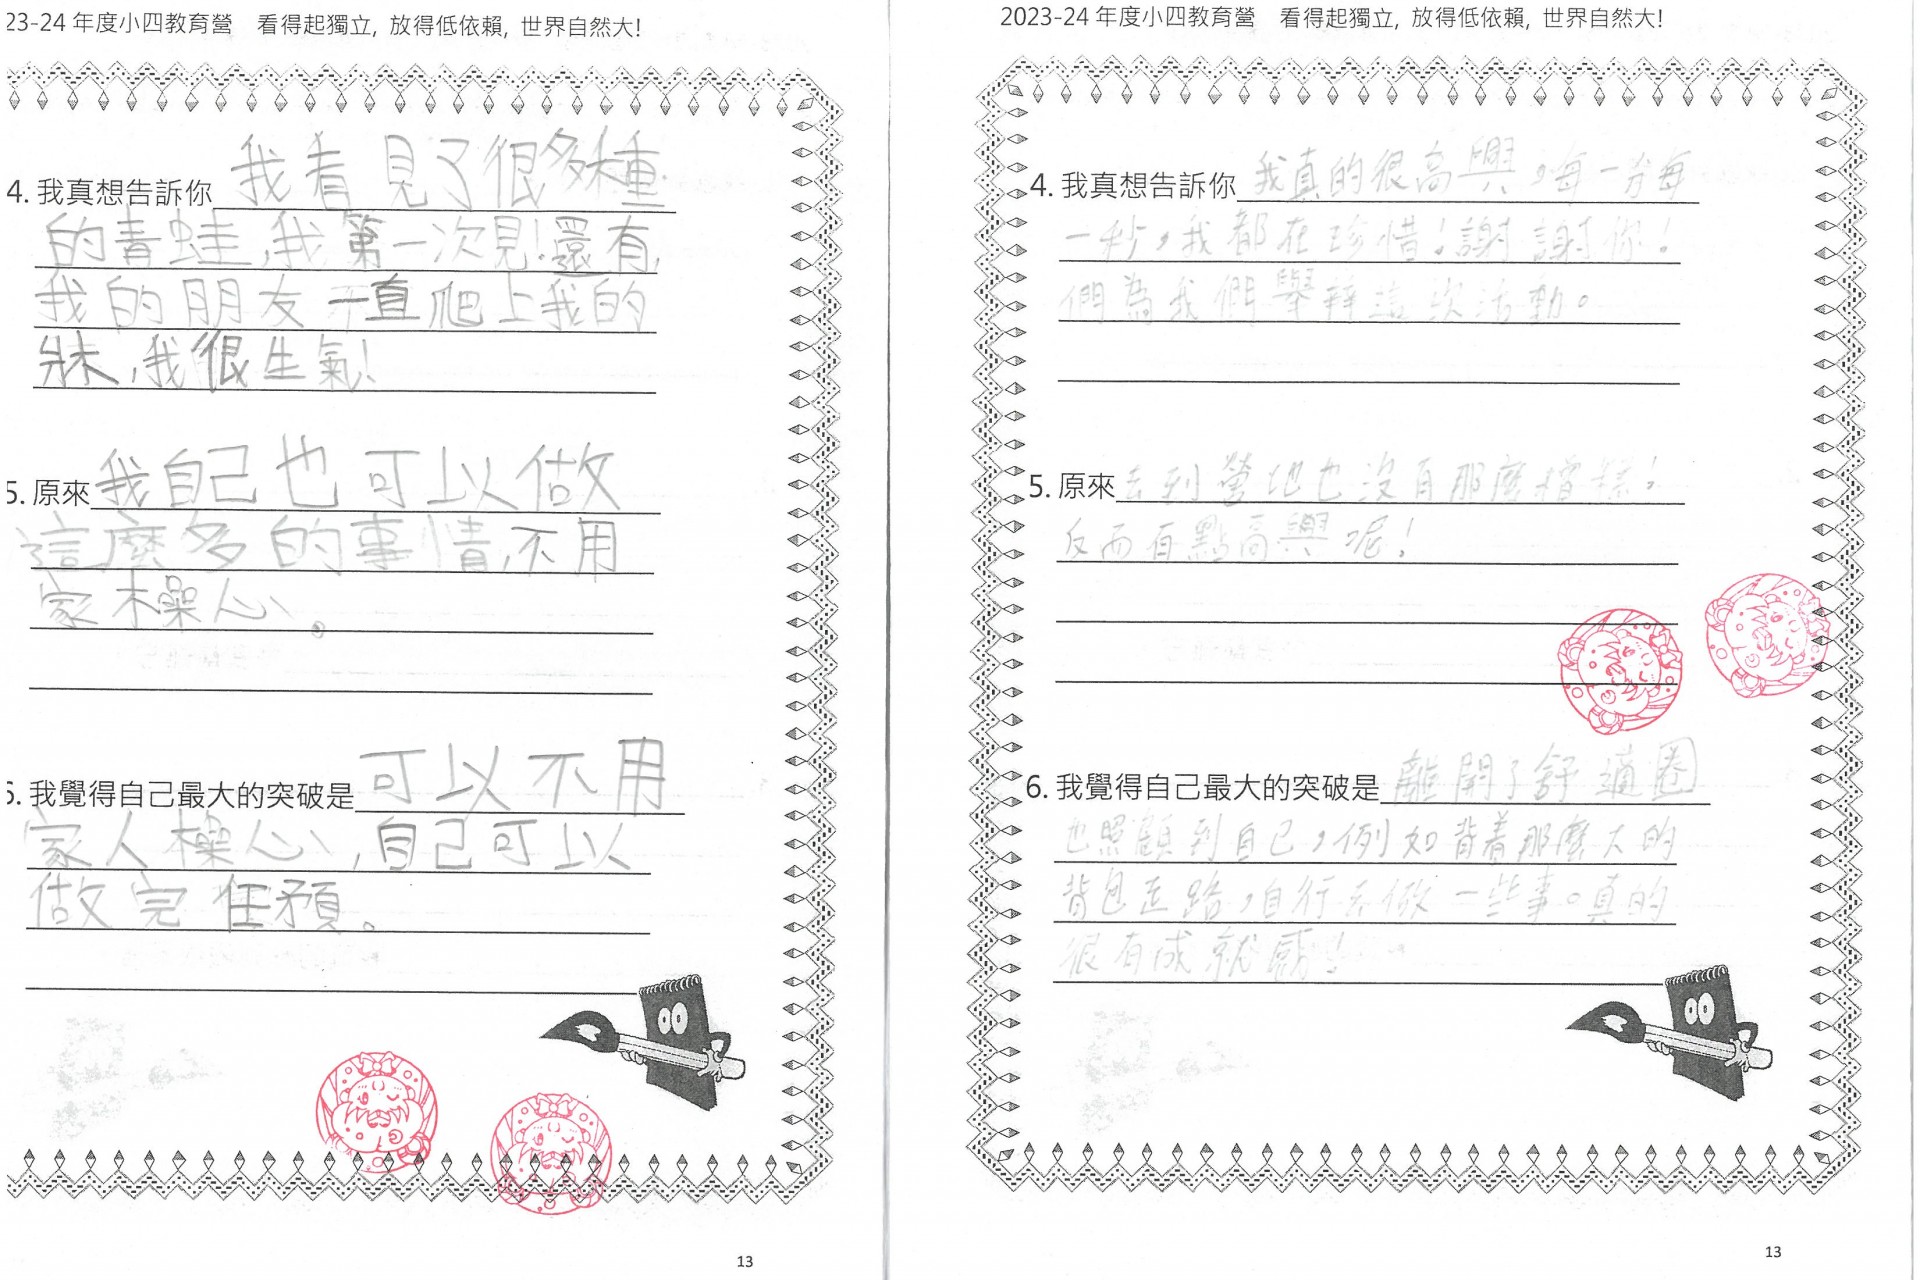 23-24 年度小四教育營　看得起獨立, 放得低依賴, 世界自然大!
4. 我真想告訴你 我看見了很多種
的青蛙,我第一次見!還有,
我的朋友一直爬上我的
牀,我很生氣!
5. 原來我自己也可以做
這麼多的事情,不用
家操心。
6. 我覺得自己最大的突破是 可以不用
家人操心,自己可以
做完任務。
13
2023-24 年度小四教育營　看得起獨立, 放得低依賴, 世界自然大!
4. 我真想告訴你 我真的很高興,每一分每
一秒,我都在珍惜!謝謝你!
們為我們舉辦這次活動。
5. 原來去到營地也沒有那麼糟糕,
反而有點高興呢!
6. 我覺得自己最大的突破是 離開了舒適圈
也照顧到自己,例如背着那麼大的
背包走路,自行去做一些事。真的
很有成就感!
13